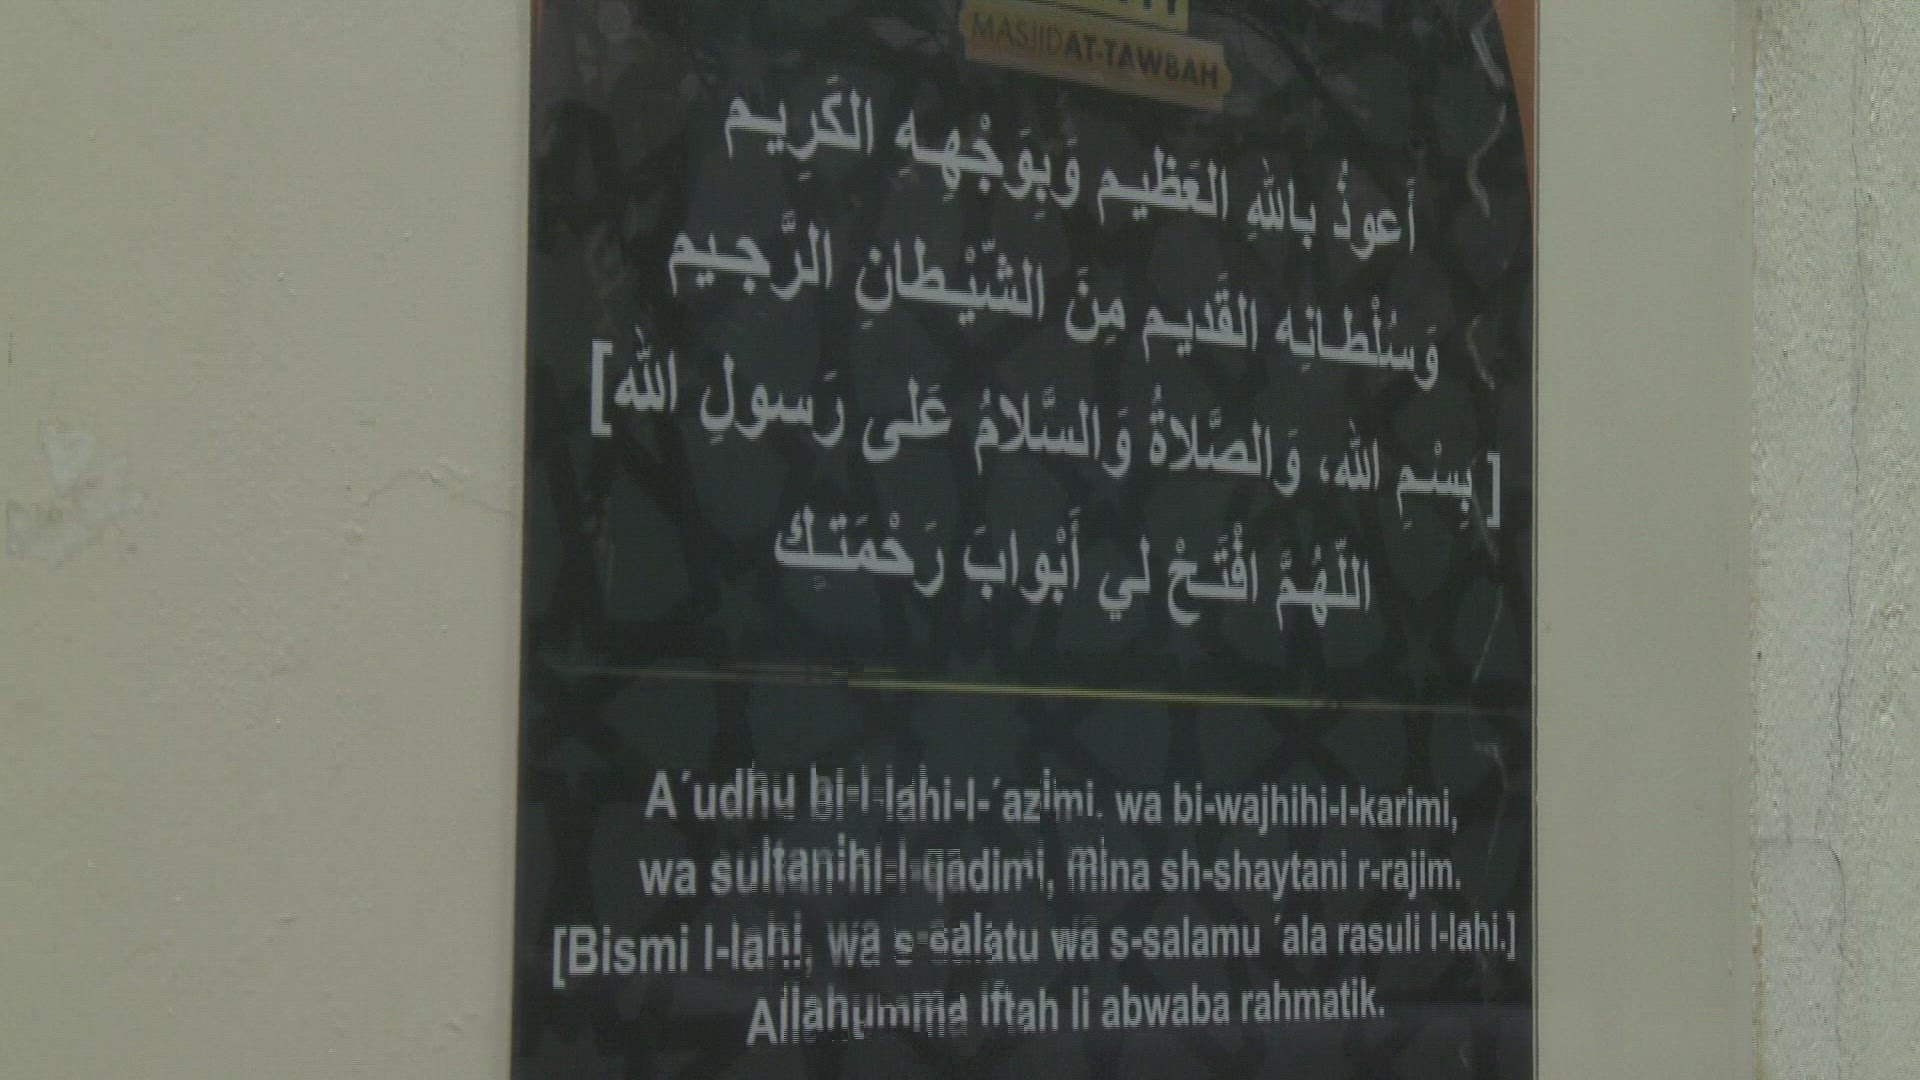 MASJID AT-TAWBAH
أَعوذُ بِاللهِ العَظيـم وَبِوَجْهِـهِ الكَرِيـم
وَسُلْطـانِه القَديـم مِنَ الشّيْـطانِ الرَّجـيم
[ بِسْـمِ الله، وَالصَّلاةُ وَالسَّلامُ عَلى رَسولِ الله]
اللّهُـمَّ افْتَـحْ لي أَبْوابَ رَحْمَتـِك
A´udhu bi-l-lahi-l-´azimi, wa bi-wajhihi-l-karimi,
wa sultanihi-l-qadimi, mina sh-shaytani r-rajim.
[Bismi l-lahi, wa s-salatu wa s-salamu ´ala rasuli l-lahi.]
Allahumma iftah li abwaba rahmatik.